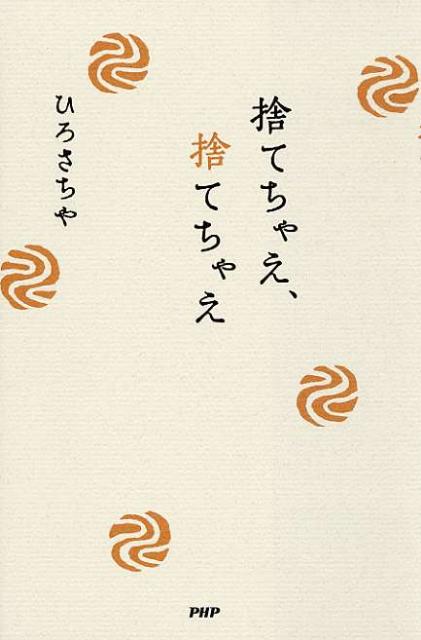 捨てちゃえ、
捨てちゃえ
ひろさちや
PHP